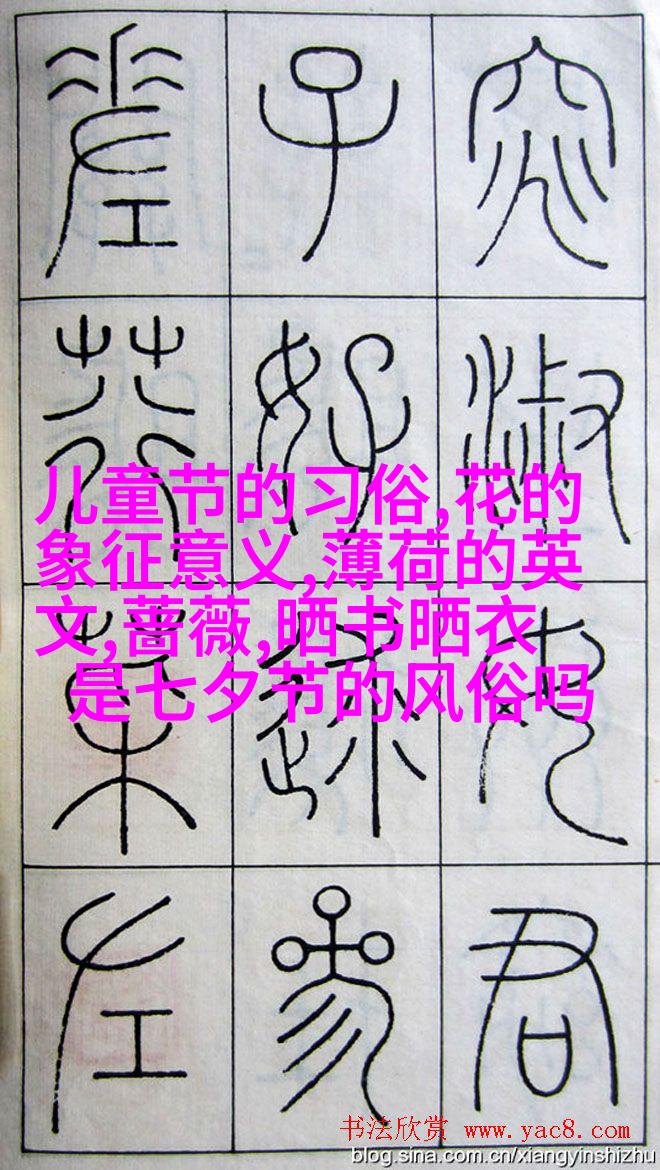 窕淑女君
子好逑参
差荇菜左
儿童节的习俗,花的
象征意义,薄荷的英
文,蔷薇,晒书晒衣
是七夕节的风俗吗
书法欣赏 www.yac8.com
blog.sina.com.cn/xiangyinshizhu